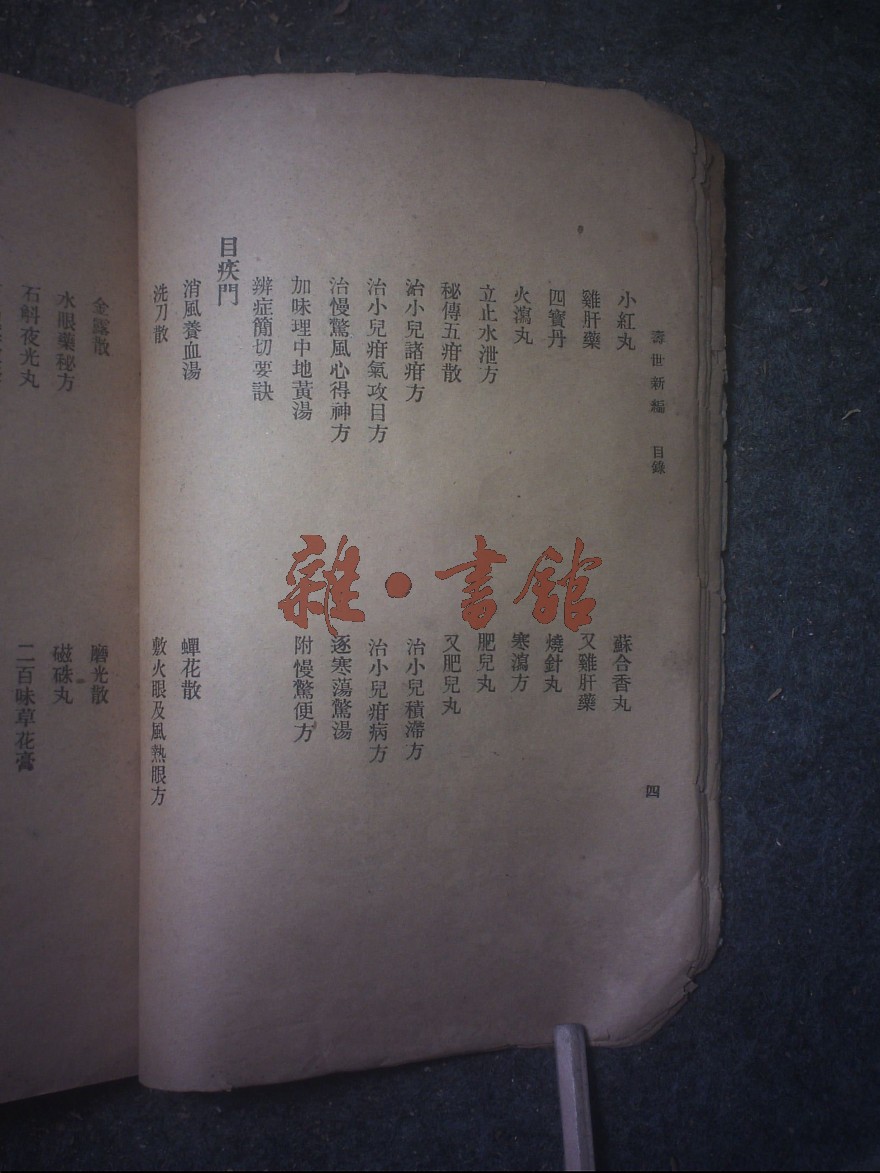 壽世新編 目錄 四
小紅丸 蘇合香丸
雞肝藥 又雞肝藥
四寶丹 燒針丸
火瀉丸 寒瀉方
立止水泄方 肥兒丸
秘傳五疳散 又肥兒丸
治小兒諸疳方 治小兒積滯方
治小兒疳氣攻目方 治小兒疳病方
治慢驚風心得神方 逐寒蕩驚湯
加味理中地黃湯 附慢驚便方
辨症簡切要訣
目疾門
消風養血湯 蟬花散
洗刀散 敷火眼及風熱眼方
金露散 磨光散
水眼藥秘方 磁硃丸
石斛夜光丸 二百味草花膏
雜·書館